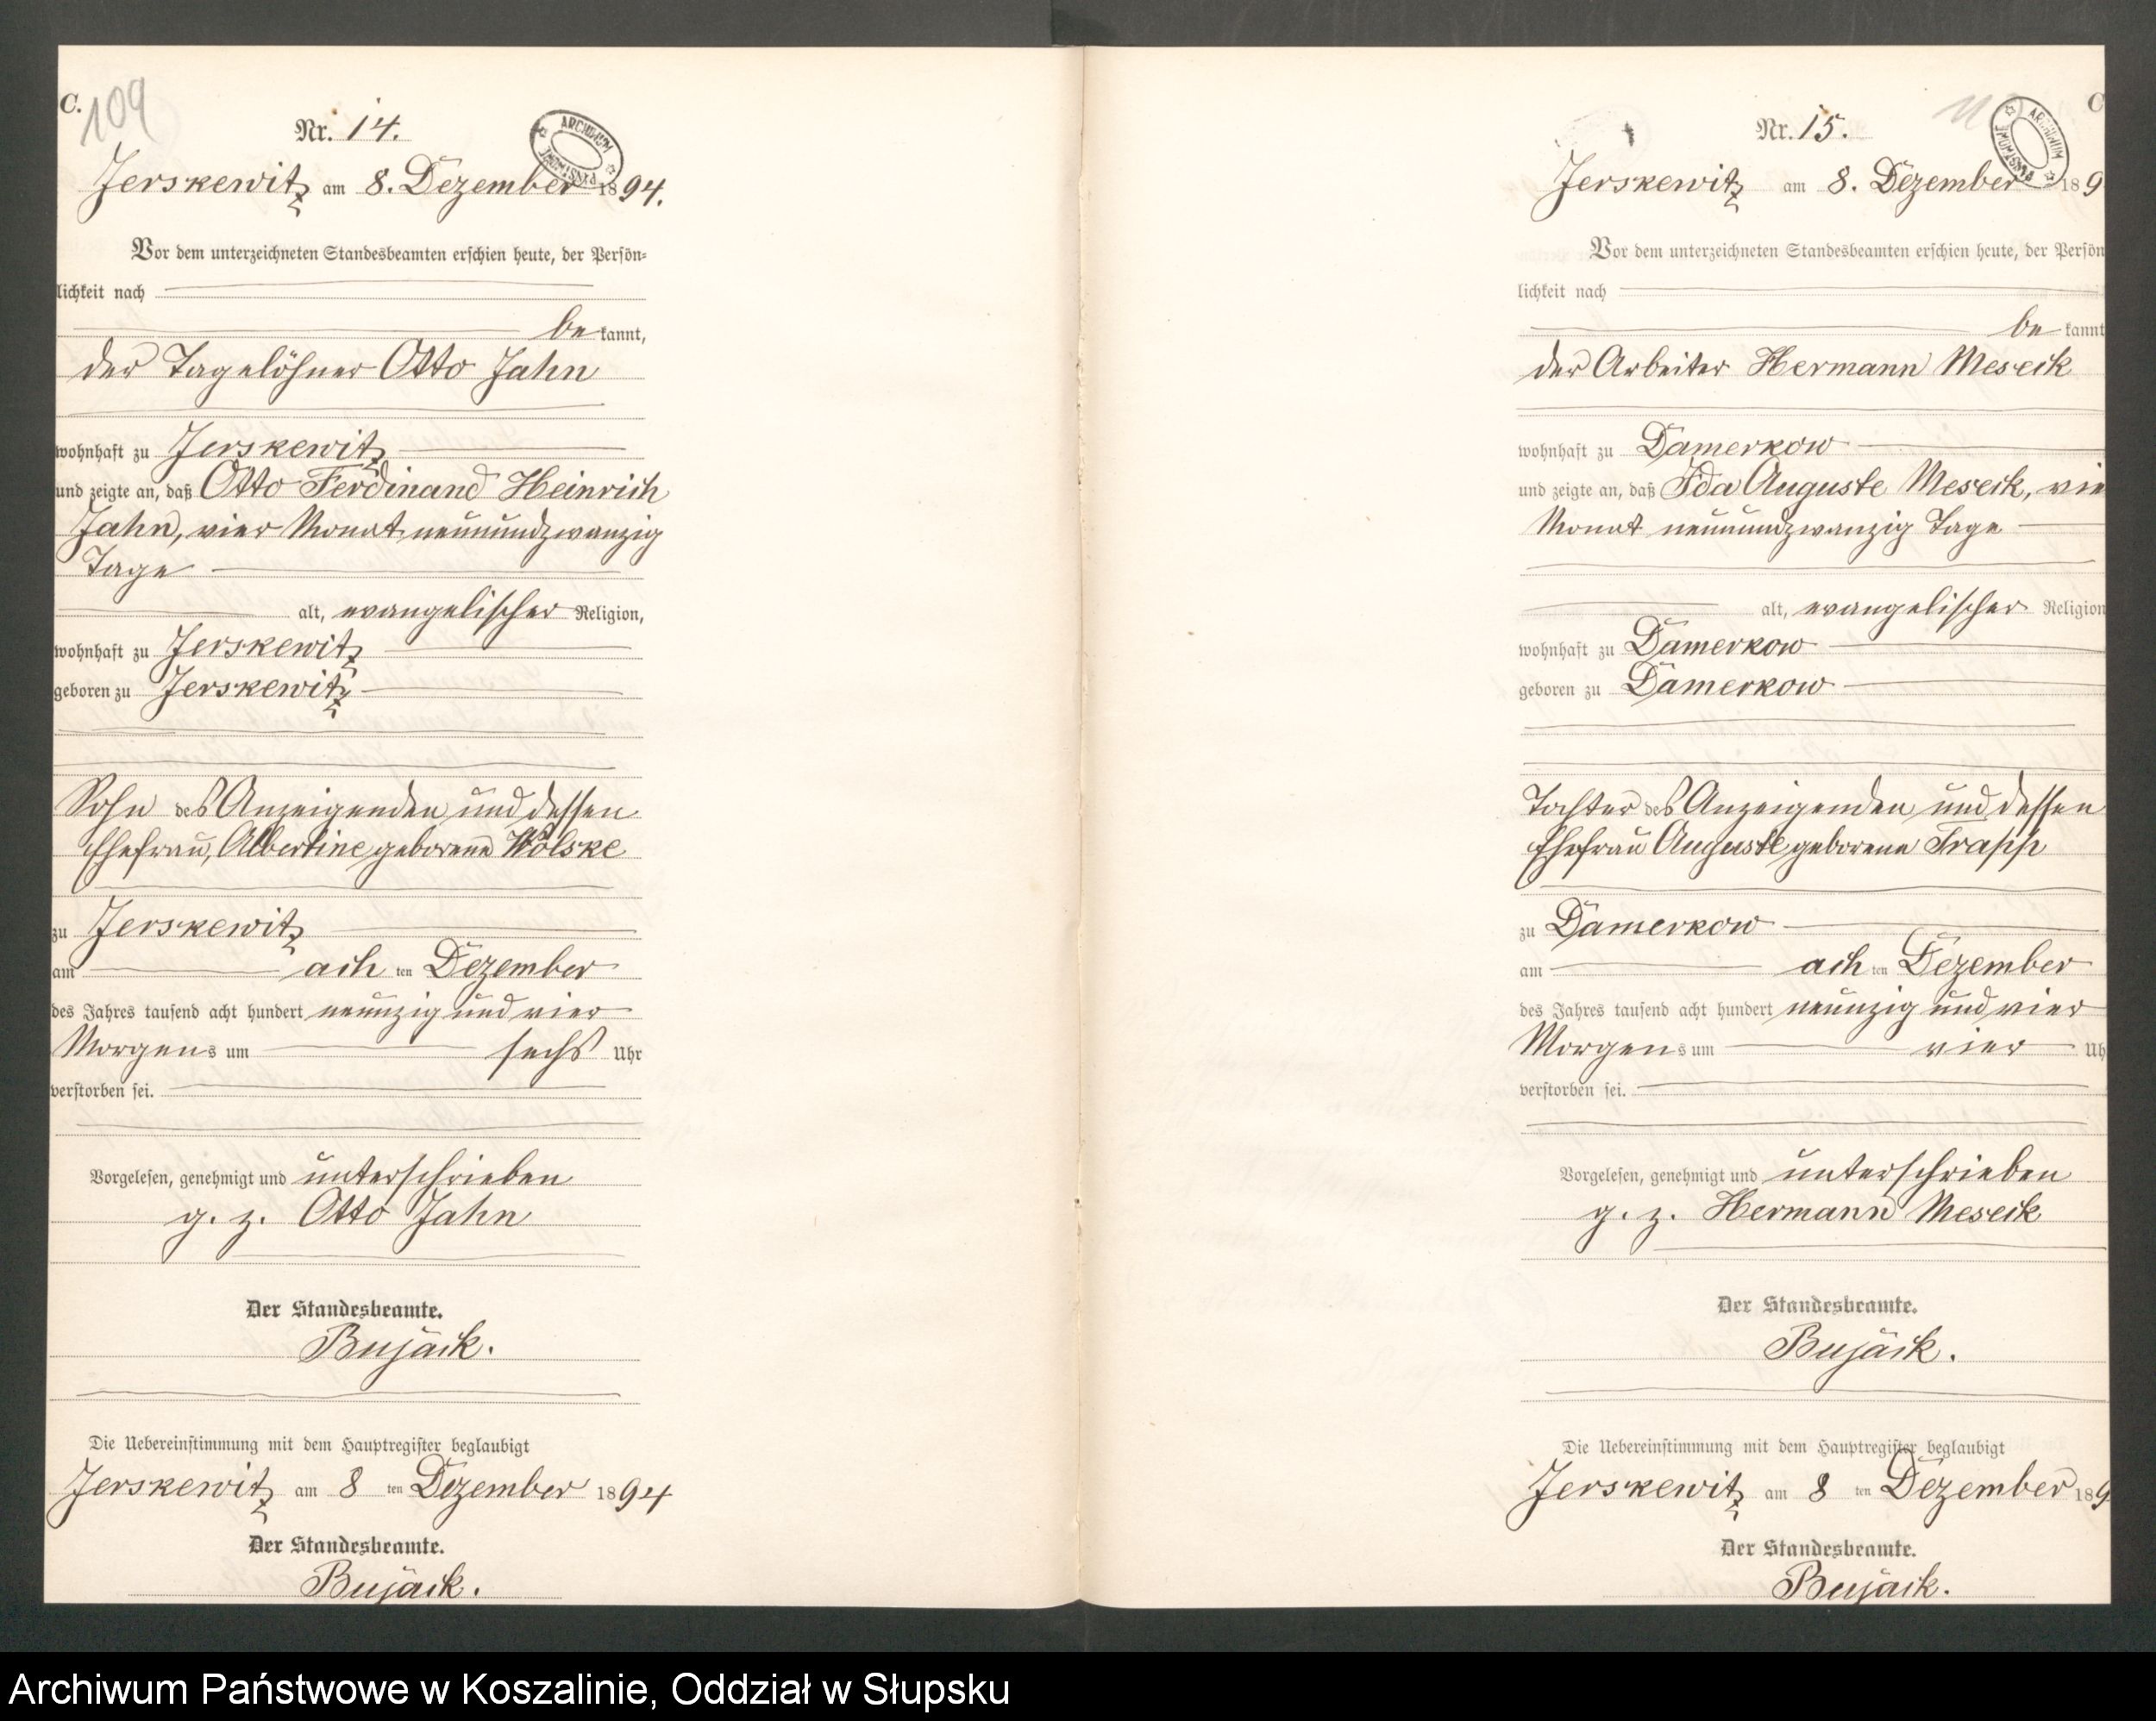 C.
109
Nr. 14.
ARCHIWUM PAŃSTWOWE
Jerskewitz am 8. Dezember 1894.
Vor dem unterzeichneten Standesbeamten erschien heute, der Persön-
lichkeit nach
be kannt,
der Tagelöhner Otto Jahn
wohnhaft zu Jerskewitz
und zeigte an, daß Otto Ferdinand Heinrich
Jahn, vier Monat neunundzwanzig
Tage
alt, evangelischer Religion,
wohnhaft zu Jerskewitz
geboren zu Jerskewitz
Sohn des Anzeigenden und dessen
Ehefrau, Albertine geborene Wölske
zu Jerskewitz
am ach ten Dezember
des Jahres tausend acht hundert neunzig und vier
Morgens um sechs Uhr
verstorben sei.
Vorgelesen, genehmigt und unterschrieben
g. z. Otto Jahn
Der Standesbeamte.
Bujack.
Die Uebereinstimmung mit dem Hauptregister beglaubigt
Jerskewitz am 8 ten Dezember 1894
Der Standesbeamte.
Bujack.
C
Nr. 15.
ARCHIWUM PAŃSTWOWE
Jerskewitz am 8. Dezember 189
Vor dem unterzeichneten Standesbeamten erschien heute, der Persön
lichkeit nach
be kannt
der Arbeiter Hermann Meseck
wohnhaft zu Damerkow
und zeigte an, daß Ida Auguste Meseck, vie
Monat neunundzwanzig Tage
alt, evangelischer Religion
wohnhaft zu Damerkow
geboren zu Damerkow
Tochter des Anzeigenden und dessen
Ehefrau Auguste geborene Trapp
zu Damerkow
am ach ten Dezember
des Jahres tausend acht hundert neunzig und vier
Morgens um vier Uh
verstorben sei.
Vorgelesen, genehmigt und unterschrieben
g. z. Hermann Meseck
Der Standesbeamte.
Bujack.
Die Uebereinstimmung mit dem Hauptregister beglaubigt
Jerskewitz am 8 ten Dezember 189
Der Standesbeamte.
Bujack.
Archiwum Państwowe w Koszalinie, Oddział w Słupsku